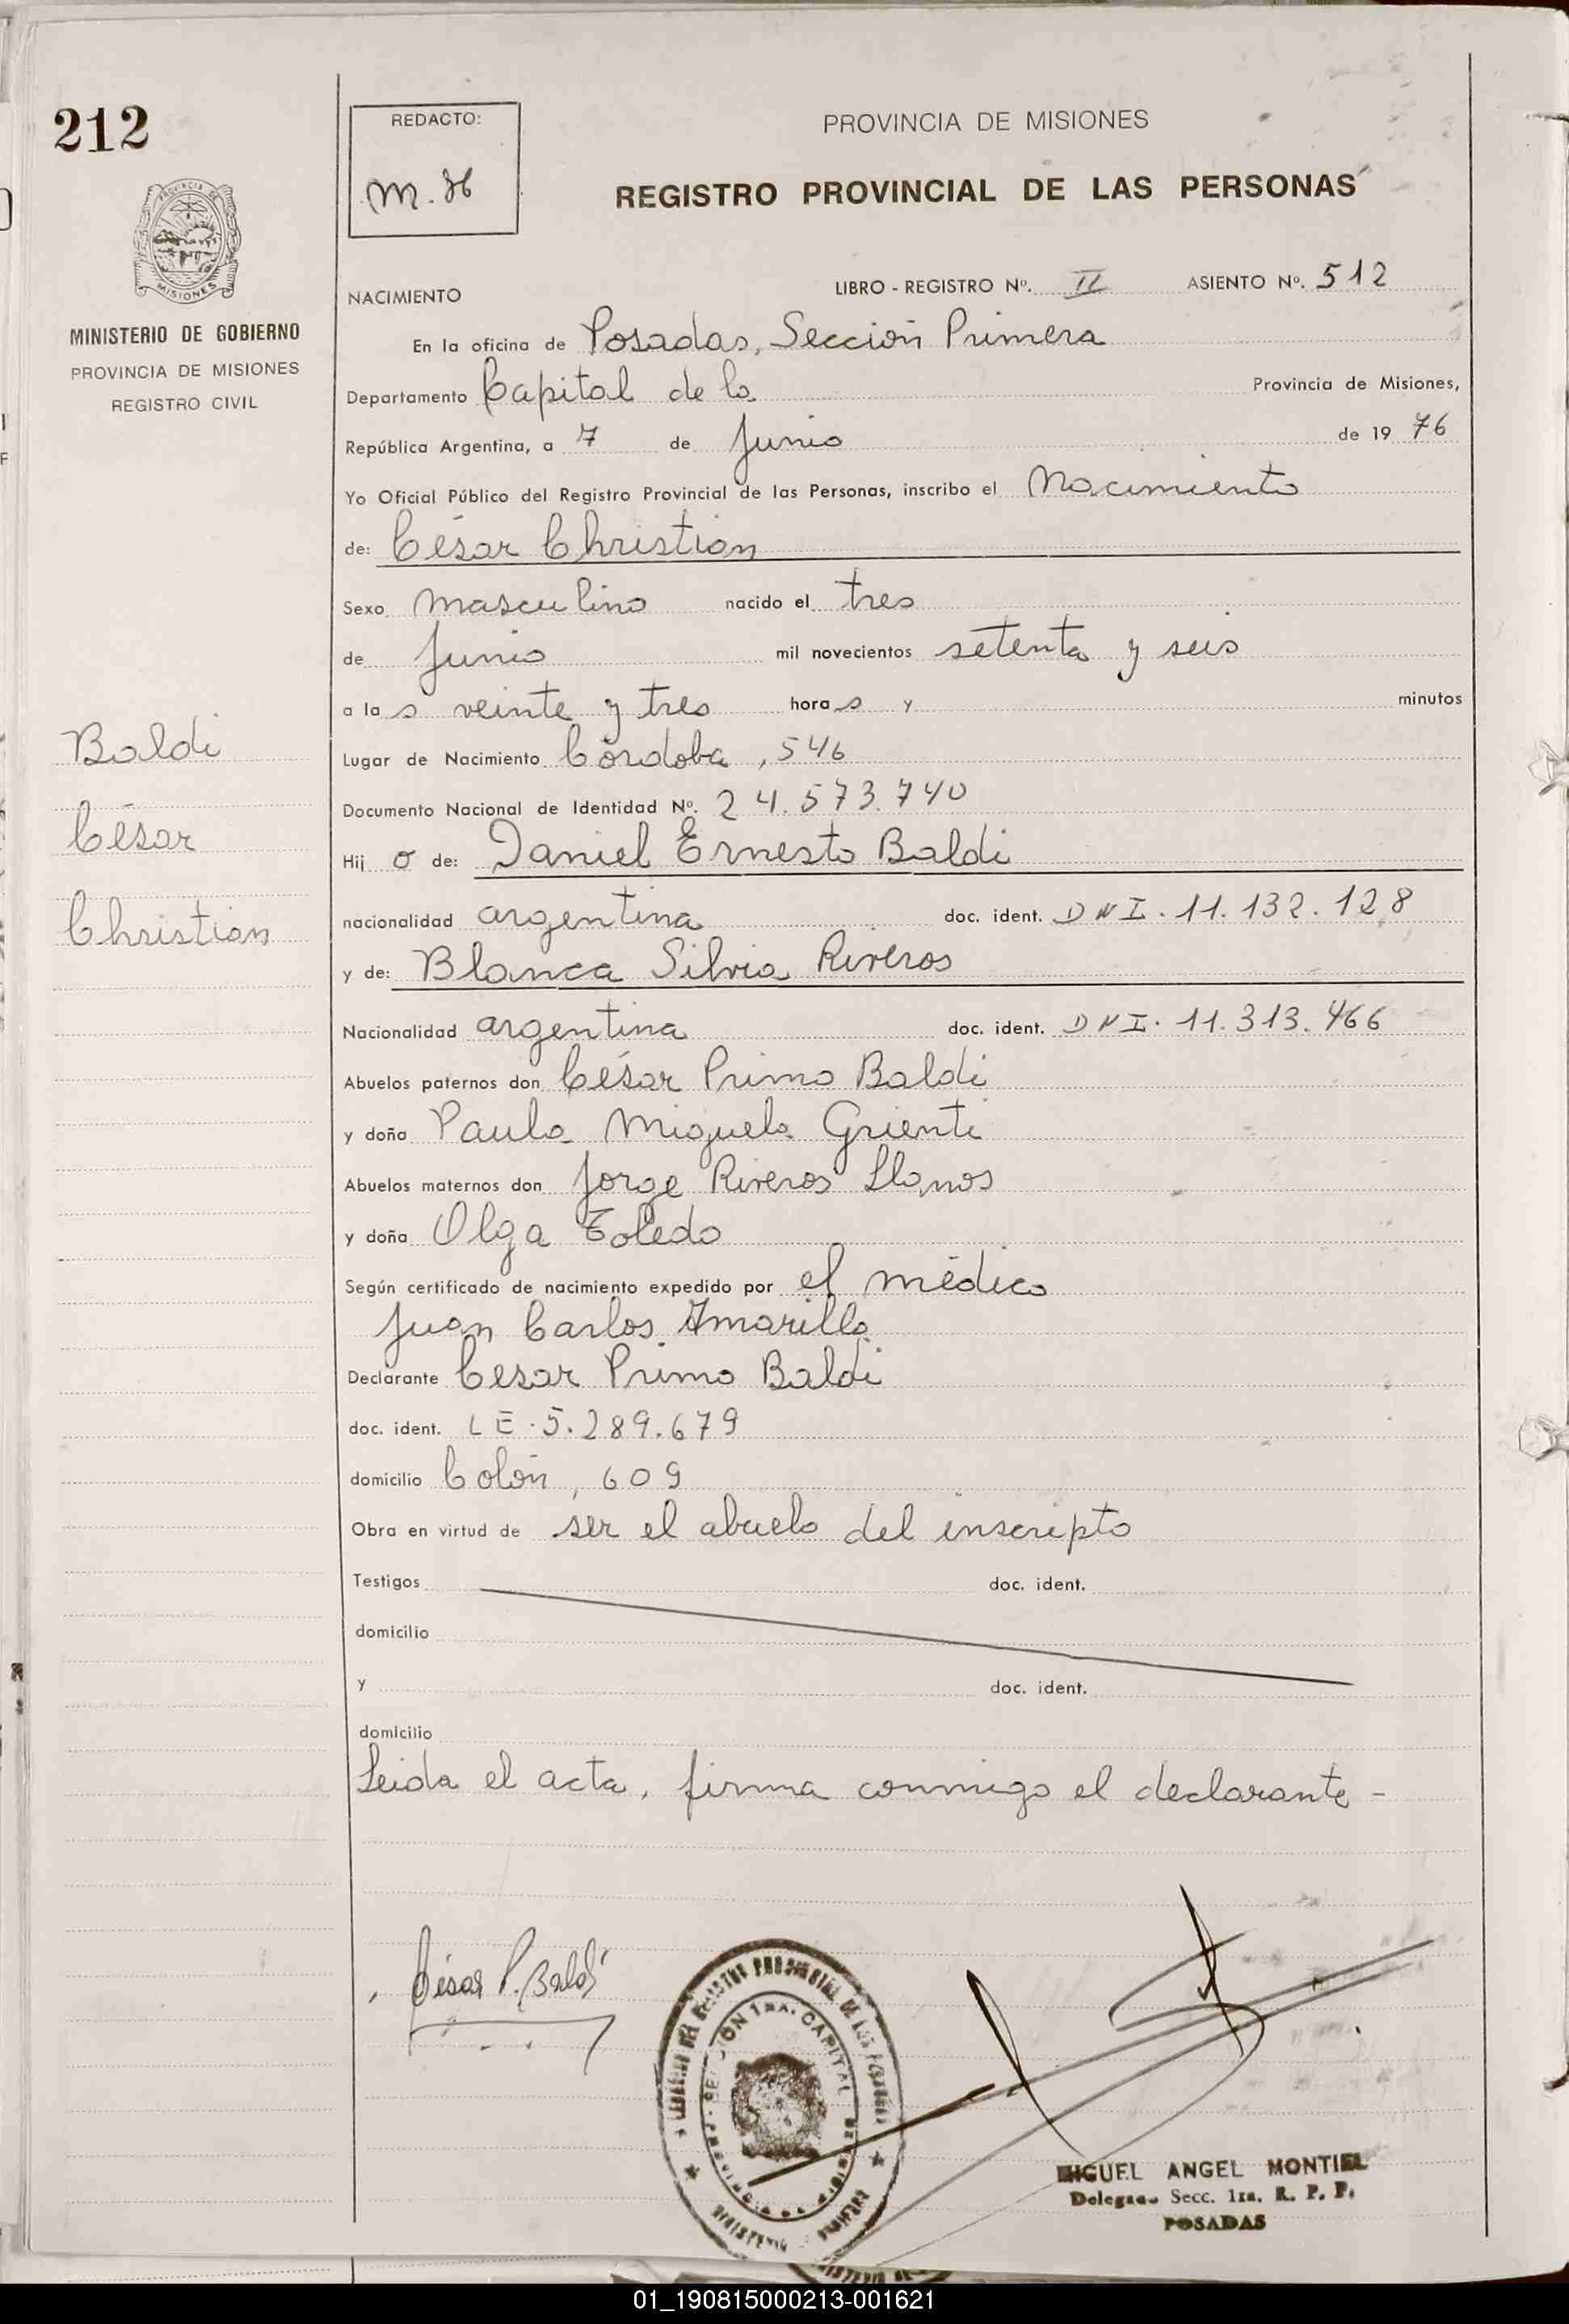 212
PROVINCIA DE
MISIONES
MINISTERIO DE GOBIERNO
PROVINCIA DE MISIONES
REGISTRO CIVIL
Baldi
César
Christian
REDACTO:
PROVINCIA DE MISIONES
REGISTRO PROVINCIAL DE LAS PERSONAS
NACIMIENTO LIBRO - REGISTRO Nº. II ASIENTO Nº. 512
En la oficina de Posadas, Sección Primera
Departamento Capital de la Provincia de Misiones,
República Argentina, a 7 de Junio de 19 76
Yo Oficial Público del Registro Provincial de las Personas, inscribo el Nacimiento
de: César Christian
Sexo masculino nacido el tres
de Junio mil novecientos setenta y seis
a las veinte y tres horas y minutos
Lugar de Nacimiento Córdoba, 546
Documento Nacional de Identidad Nº. 24.573.740
Hijo de: Daniel Ernesto Baldi
nacionalidad argentina doc. ident. DNI. 11.132.128
y de: Blanca Silvia Riveros
Nacionalidad argentina doc. ident. DNI. 11.313.466
Abuelos paternos don César Primo Baldi
y doña Paula Miguela Grienti
Abuelos maternos don Jorge Riveros Llanos
y doña Olga Toledo
Según certificado de nacimiento expedido por el médico
Juan Carlos Amarilla
Declarante Cesar Primo Baldi
doc. ident. LE.5.289.679
domicilio Colón, 609
Obra en virtud de ser el abuelo del inscripto
Testigos doc. ident.
domicilio
y doc. ident.
domicilio
Leida el acta, firma conmigo el declarante -
César P. Baldi
REGISTRO PROVINCIAL DE LAS PERSONAS
SECCION 1RA. CAPITAL
MIGUEL ANGEL MONTIEL
Delegado Secc. 1ra. R. P. P.
POSADAS
01_190815000213-001621